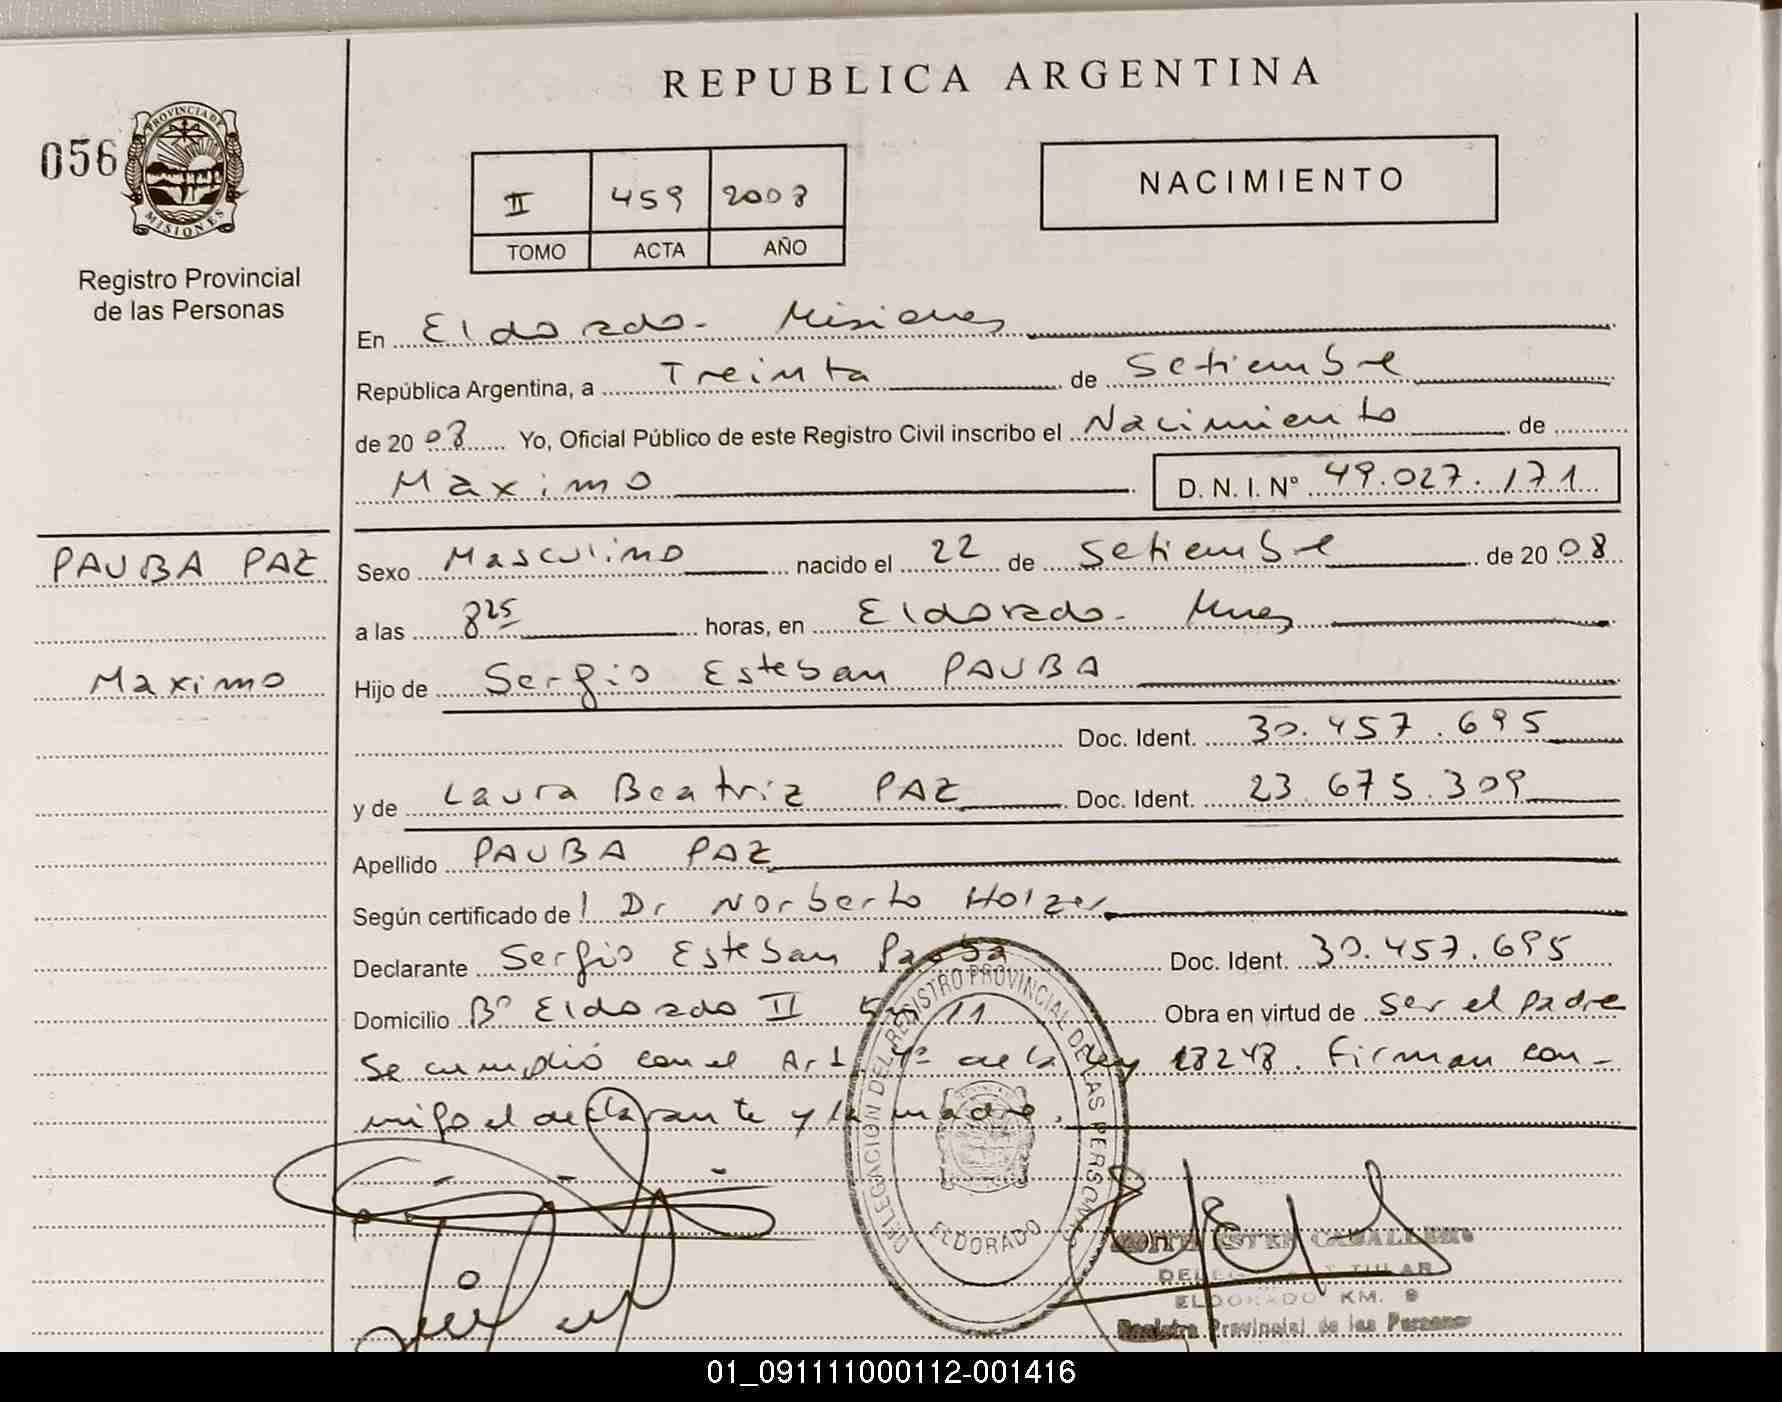 REPUBLICA ARGENTINA
056
PROVINCIA DE
MISIONES
Registro Provincial
de las Personas
II 459 2008
TOMO ACTA AÑO
NACIMIENTO
En Eldorado - Misiones
República Argentina, a Treinta de Setiembre
de 2008 Yo, Oficial Público de este Registro Civil inscribo el Nacimiento de
Maximo D. N. I. N° 49.027.171
PAUBA PAZ
Maximo
Sexo Masculino nacido el 22 de Setiembre de 2008
a las 8 25 horas, en Eldorado - Mnes
Hijo de Sergio Esteban PAUBA
Doc. Ident. 30.457.695
y de Laura Beatriz PAZ Doc. Ident. 23.675.309
Apellido PAUBA PAZ
Según certificado de l Dr Norberto Holzer
Declarante Sergio Esteban Pauba Doc. Ident. 30.457.695
Domicilio B° Eldorado II 11 Obra en virtud de Ser el padre
Se cumplió con el Art 4° de la ley 18248. Firman con-
migo el declarante y la madre.
DELEGACION DEL REGISTRO PROVINCIAL DE LAS PERSONAS
ELDORADO
ESTER CABALLERO
DELEGADA TITULAR
ELDORADO KM. 9
Registro Provincial de las Personas
01_091111000112-001416